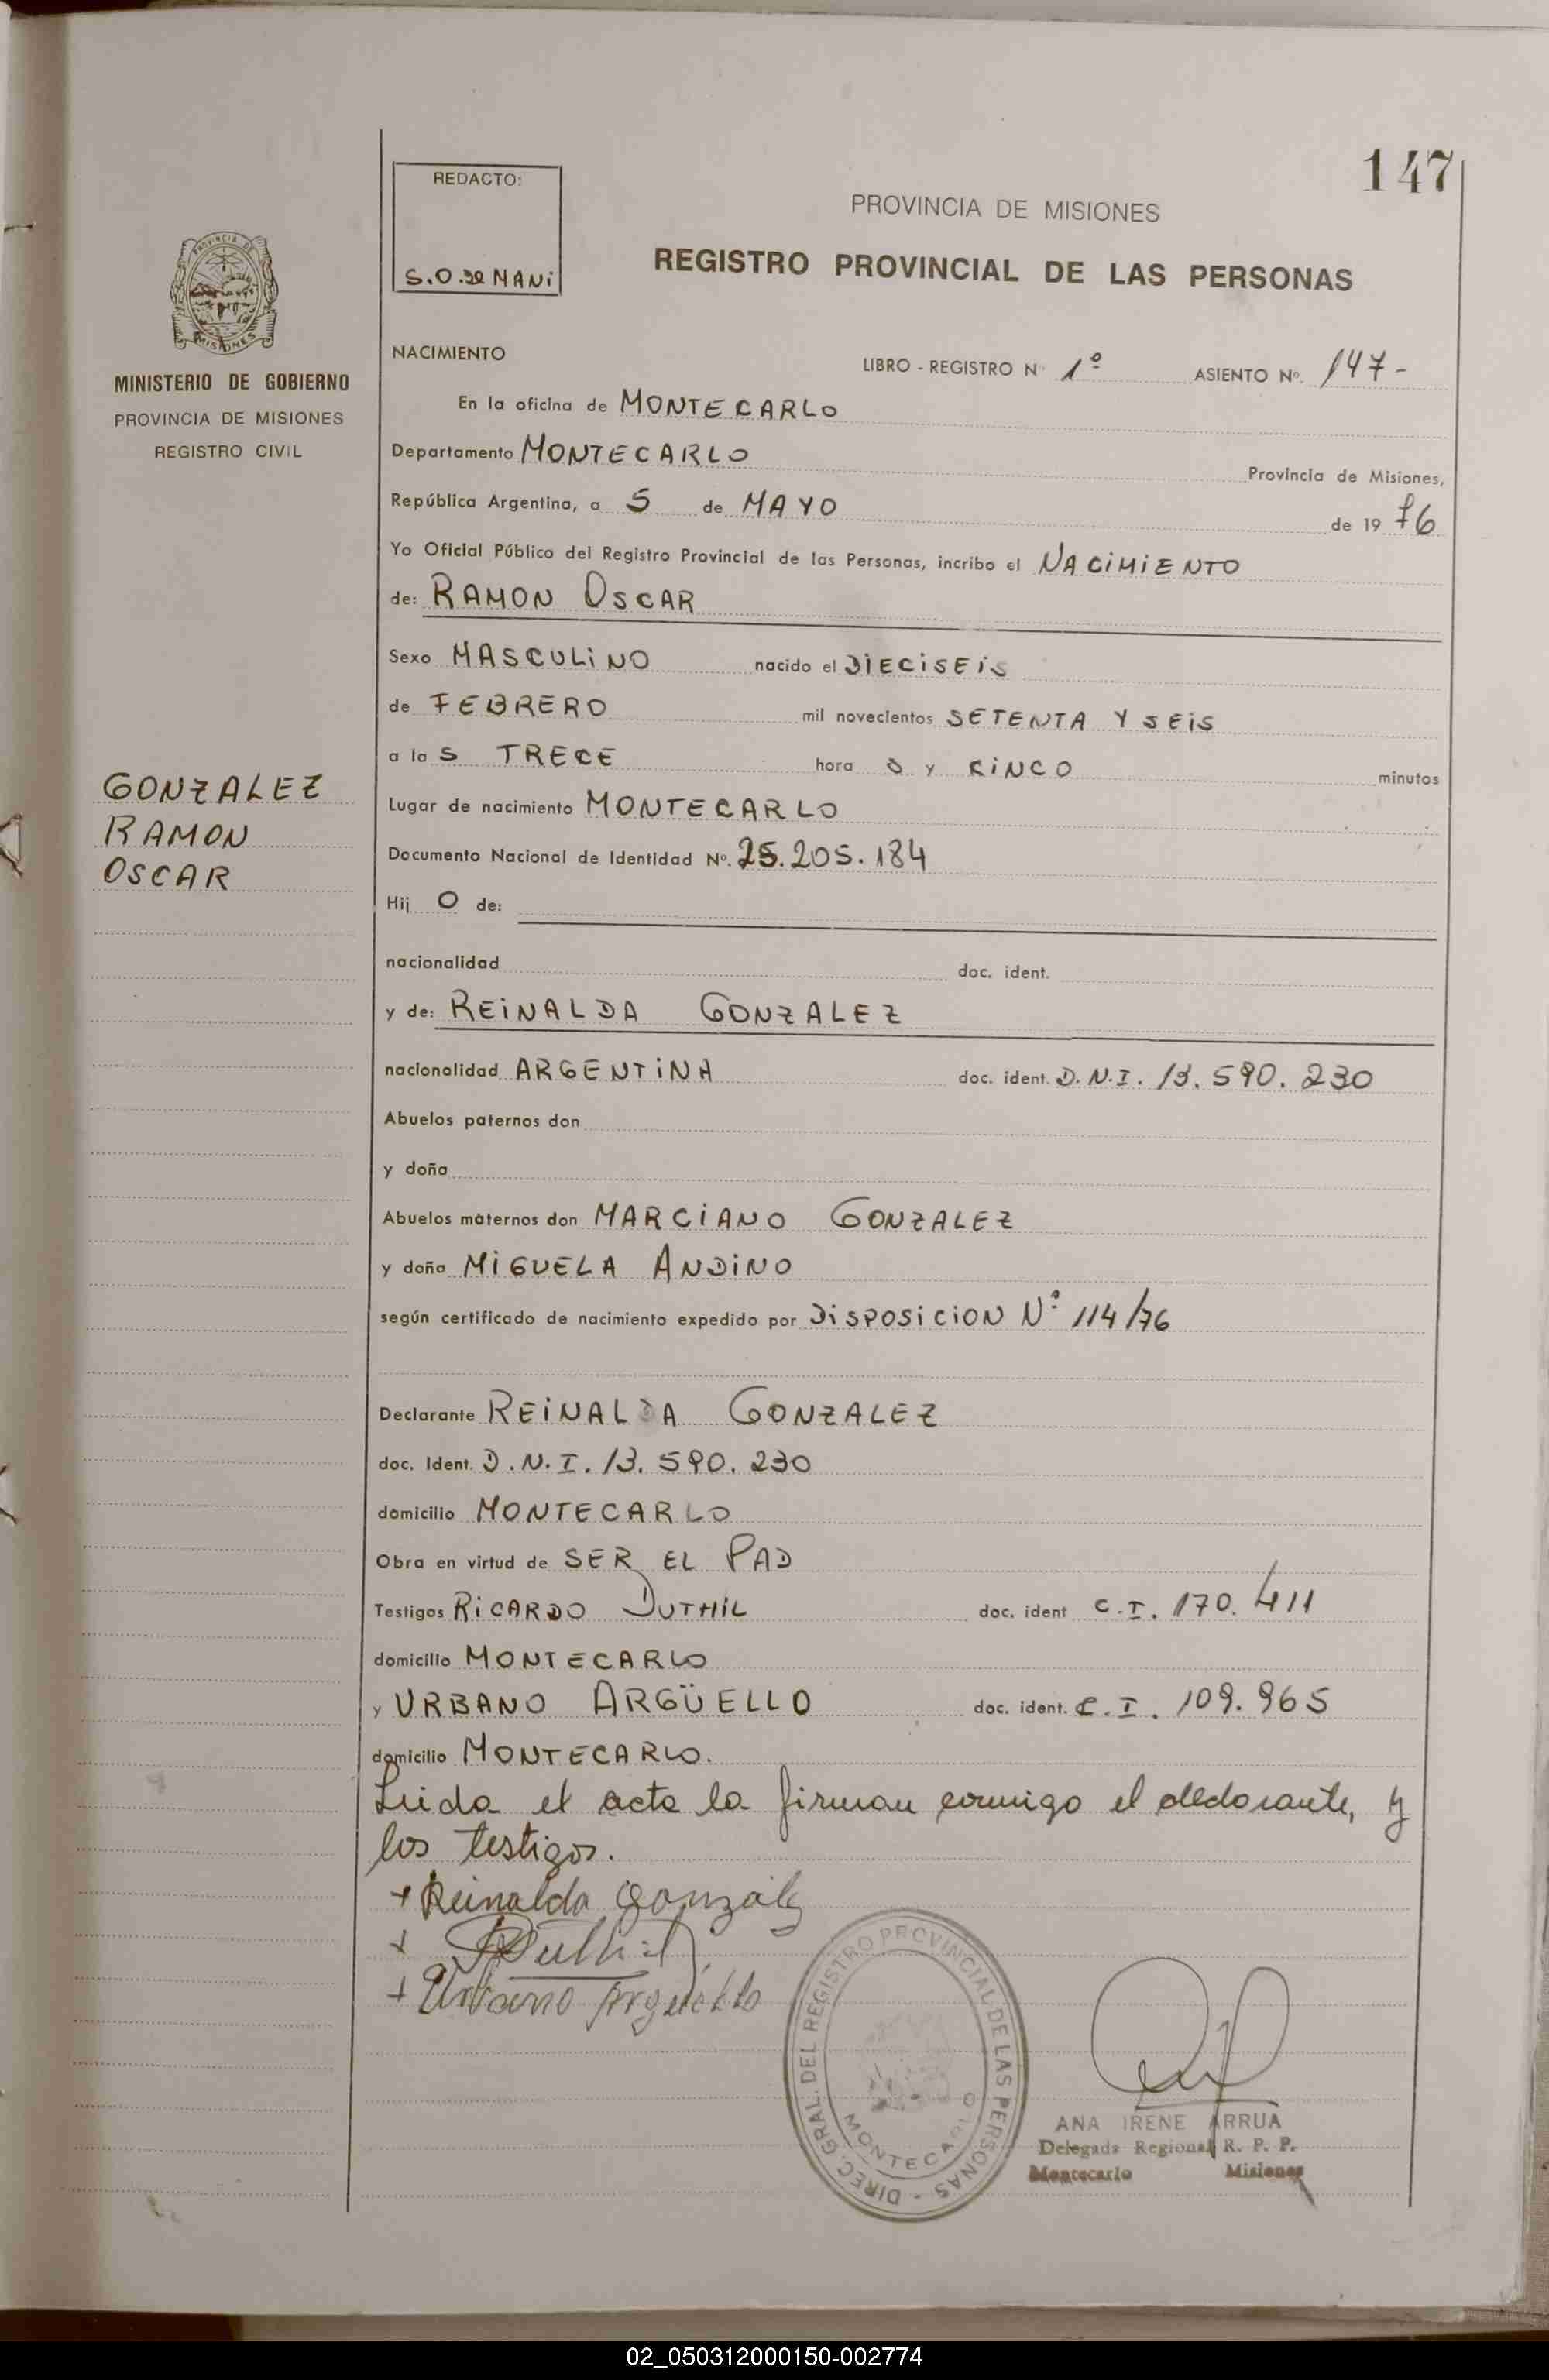 147
REDACTO:
S.O. DE MANI
PROVINCIA DE MISIONES
REGISTRO PROVINCIAL DE LAS PERSONAS
PROVINCIA DE
MISIONES
MINISTERIO DE GOBIERNO
PROVINCIA DE MISIONES
REGISTRO CIVIL
GONZALEZ
RAMON
OSCAR
NACIMIENTO LIBRO - REGISTRO N° 1º ASIENTO Nº. 147-
En la oficina de MONTECARLO
Departamento MONTECARLO Provincia de Misiones,
República Argentina, a 5 de MAYO de 19 76
Yo Oficial Público del Registro Provincial de las Personas, incribo el NACIMIENTO
de: RAMON OSCAR
Sexo MASCULINO nacido el DIECISEIS
de FEBRERO mil novecientos SETENTA Y SEIS
a la S TRECE hora S y CINCO minutos
Lugar de nacimiento MONTECARLO
Documento Nacional de Identidad Nº. 25.205.184
Hij O de:
nacionalidad doc. ident.
y de: REINALDA GONZALEZ
nacionalidad ARGENTINA doc. ident. D.N.I. 13.590.230
Abuelos paternos don
y doña
Abuelos maternos don MARCIANO GONZALEZ
y doña MIGUELA ANDINO
según certificado de nacimiento expedido por DISPOSICION Nº 114/76
Declarante REINALDA GONZALEZ
doc. Ident. D.N.I. 13.590.230
domicilio MONTECARLO
Obra en virtud de SER EL PAD
Testigos RICARDO DUTHIL doc. ident C.I. 170.411
domicilio MONTECARLO
y URBANO ARGÜELLO doc. ident. C.I. 109.965
domicilio MONTECARLO.
Leida el acta la firman conmigo el declarante, y
los testigos.
+ Reinalda Gonzalez
+ RDuthil
+ Urbano Arguello
DIREC. GRAL. DEL REGISTRO PROVINCIAL DE LAS PERSONAS -
MONTECARLO
ANA IRENE ARRUA
Delegada Regional R. P. P.
Montecarlo Misiones
02_050312000150-002774